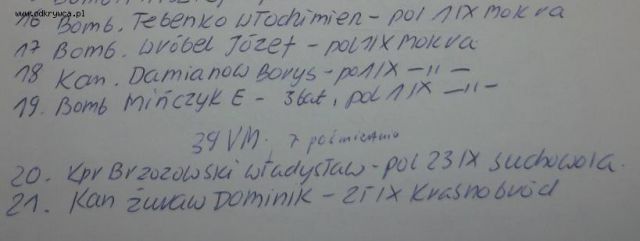 www.odkrywca.pl
16 Bomb. Tebenko Włodzimierz - pol 1 IX Mokra
17 Bomb. Wróbel Józef - pol 1 IX Mokra
18 Kan. Damianow Borys - pol 1 IX -〃-
19. Bomb Mińczyk E - 3 bat, pol 1 IX -〃-
34 VM. 7 pośmiertnie
20. Kpr Brzozowski Władysław - pol 23 IX Suchowola.
21. Kan Żuraw Dominik - 25 IX Krasnobród